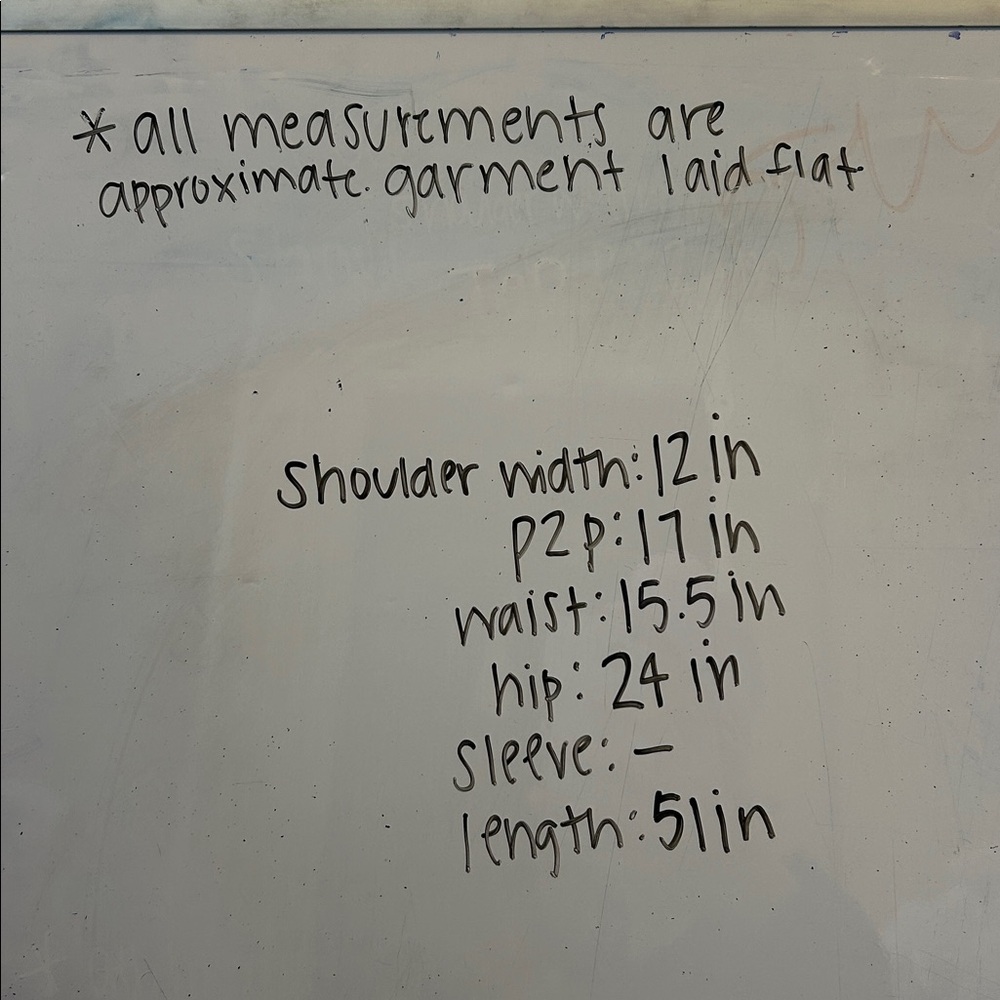 * all measurements are
approximate. garment laid flat
shoulder width: 12 in
p2p: 17 in
waist: 15.5 in
hip: 24 in
sleeve: —
length: 51 in